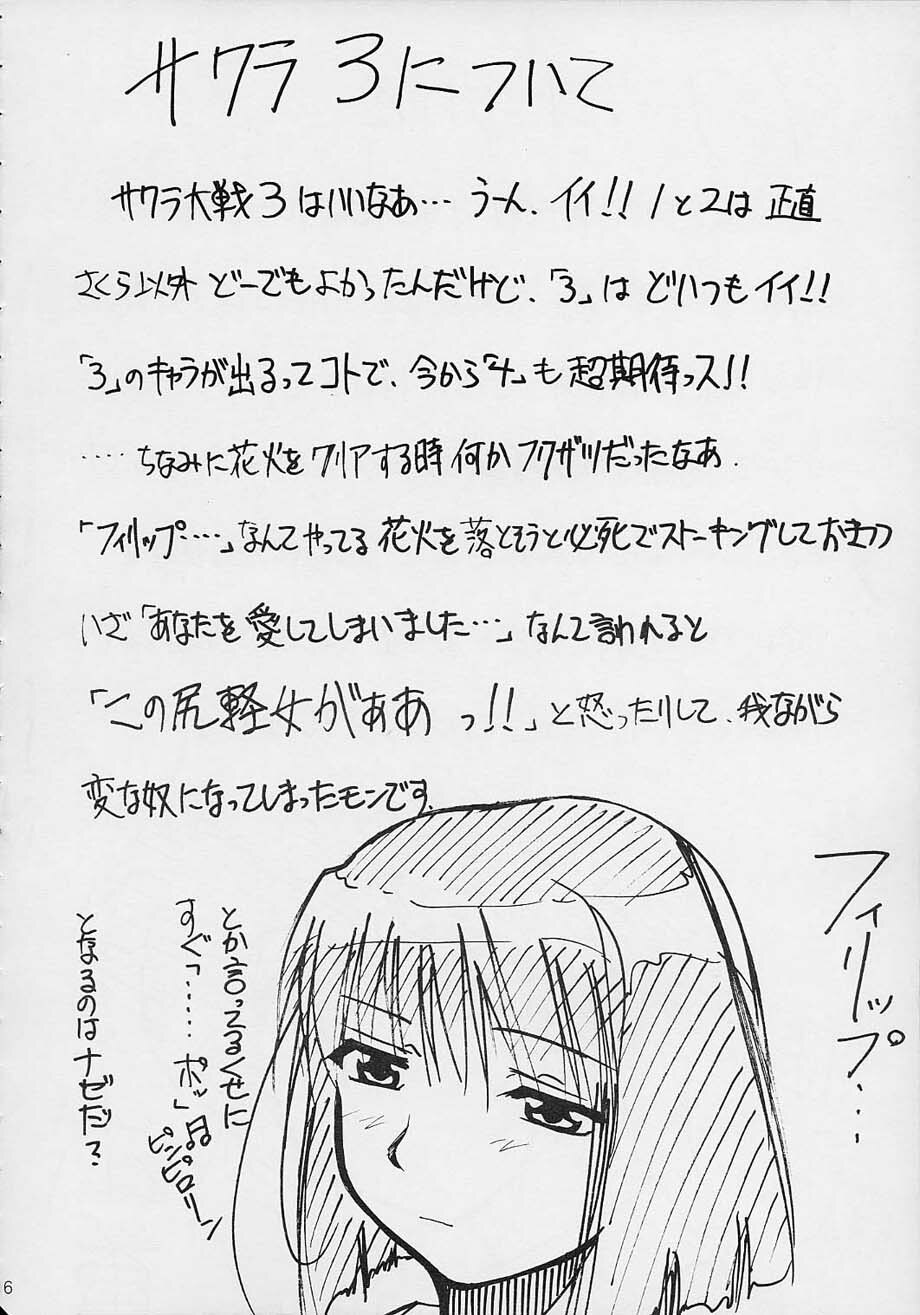 サクラ3について
サクラ大戦3はいいなぁ…うーん、イイ!!1と2は正直
さくら以外どーでもよかったんだけど、「3」はどいつもイイ!!
「3」のキャラが出るってコトで、今から「4」も超期待っス!!
‥‥ちなみに花火をクリアする時何かフクザツだったなあ.
「フィリップ‥…」なんてやってる花火を落とそうと必死でストーキングしておきつつ
いざ「あなたを愛してしまいました…」なんて言われると
「この尻軽女がぁあっ!!」と怒ったりして、我ながら
変な奴になってしまったモンです.
フィリップ…
とか言ってるくせに
すぐ「……ポッ」♫
ピンピロリーン
となるのはナゼだ?
6